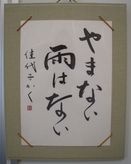 やまない
雨はない
佳代子かく